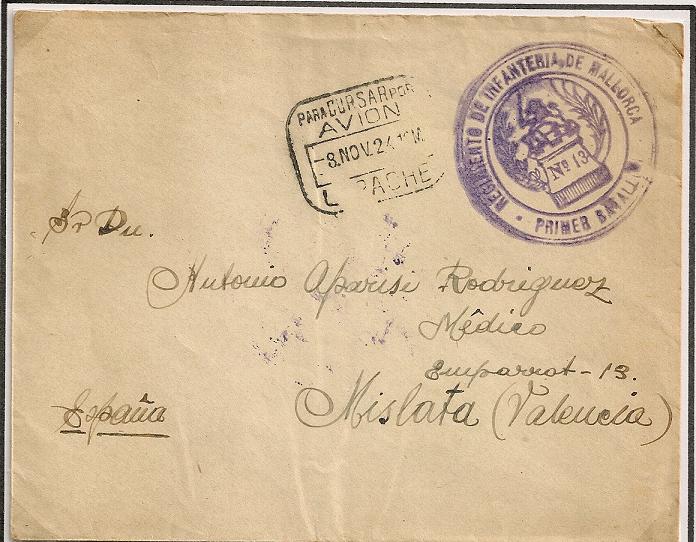 PARA CURSAR POR
AVION
8.NOV.24
L PACHE
REGIMENTO DE INFANTERIA DE MALLORCA
Nº 13
• PRIMER BATALL
Sr Dn.
Antonio Aparisi Rodriguez
Médico
Emparrat - 13.
Mislata (Valencia)
España